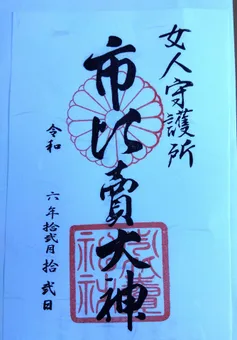 女人守護所
市比賣大神
令和六年拾弐月拾弐日